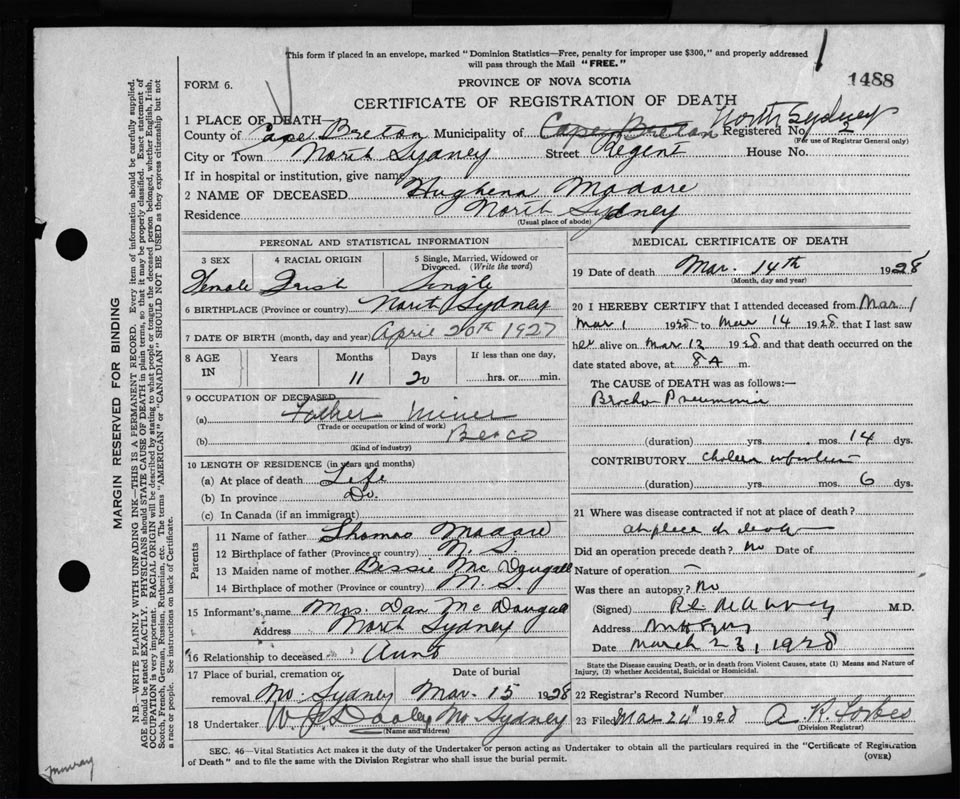 This form if placed in an envelope, marked "Dominion Statistics—Free, penalty for improper use $300," and properly addressed
will pass through the Mail "FREE."
FORM 6.
PROVINCE OF NOVA SCOTIA
1488
CERTIFICATE OF REGISTRATION OF DEATH
1 PLACE OF DEATH
North Sydney
County of Cape Breton Municipality of Cape Breton Registered No. 2
(For use of Registrar General only)
City or Town North Sydney Street Regent House No.
If in hospital or institution, give name
2 NAME OF DECEASED Hughena Madore
Residence North Sydney
(Usual place of abode)
PERSONAL AND STATISTICAL INFORMATION
3 SEX 4 RACIAL ORIGIN 5 Single, Married, Widowed or
Divorced. (Write the word)
Female Irish Single
6 BIRTHPLACE (Province or country) North Sydney
7 DATE OF BIRTH (month, day and year) April 20th 1927
8 AGE IN Years Months Days If less than one day,
11 20 hrs. or min.
9 OCCUPATION OF DECEASED
(a) Father Miner
(Trade or occupation or kind of work)
(b) Besco
(Kind of industry)
10 LENGTH OF RESIDENCE (in years and months)
(a) At place of death Life
(b) In province Do.
(c) In Canada (if an immigrant)
Parents
11 Name of father Thomas
12 Birthplace of father (Province or country) N. S.
13 Maiden name of mother Bessie Mc Dougall
14 Birthplace of mother (Province or country) N. S.
15 Informant's name Mrs. Dan Mc Dougall
Address North Sydney
16 Relationship to deceased Aunt
17 Place of burial, cremation or Date of burial
removal No. Sydney Mar. 15 1928
18 Undertaker W. J. Dooley No Sydney
(Name and address)
MEDICAL CERTIFICATE OF DEATH
19 Date of death Mar. 14th 1928
(Month, day and year)
20 I HEREBY CERTIFY that I attended deceased from Mar 1
Mar 1 1928 to Mar 14 1928 that I last saw
her alive on Mar 13 1928 and that death occurred on
date stated above, at 8 A m.
The CAUSE OF DEATH was as follows:—
Broncho Pneumonia
(duration) yrs. mos. 14 dys.
CONTRIBUTORY cholera infantum
(duration) yrs. mos. 6 dys.
21 Where was disease contracted if not at place of death?
at place of death
Did an operation precede death? No Date of
Nature of operation —
Was there an autopsy? No
(Signed) M.D.
Address
Date March 23, 1928
State the Disease causing Death, or in death from Violent Causes, state (1) Means and Nature of
Injury, (2) whether Accidental, Suicidal or Homicidal.
22 Registrar's Record Number
23 Filed Mar 24" 1928 A. R. Forbes
(Division Registrar)
SEC. 46—Vital Statistics Act makes it the duty of the Undertaker or person acting as Undertaker to obtain all the particulars required in the "Certificate of Registration
of Death" and to file the same with the Division Registrar who shall issue the burial permit.
(OVER)
MARGIN RESERVED FOR BINDING
N.B.—WRITE PLAINLY WITH UNFADING INK—THIS IS A PERMANENT RECORD. Every item of information should be carefully supplied.
AGE should be stated EXACTLY. PHYSICIANS should STATE CAUSE OF DEATH in plain terms, so that it may be properly classified. Exact statement of
OCCUPATION is very important. RACIAL ORIGIN will be described by stating to what people or tongue the deceased person belonged, whether English, Irish,
Scotch, French, German, Russian, Ruthenian, etc. The terms "AMERICAN" or "CANADIAN" SHOULD NOT BE USED as they express citizenship but not
a race or people. See instructions on back of Certificate.
Murray